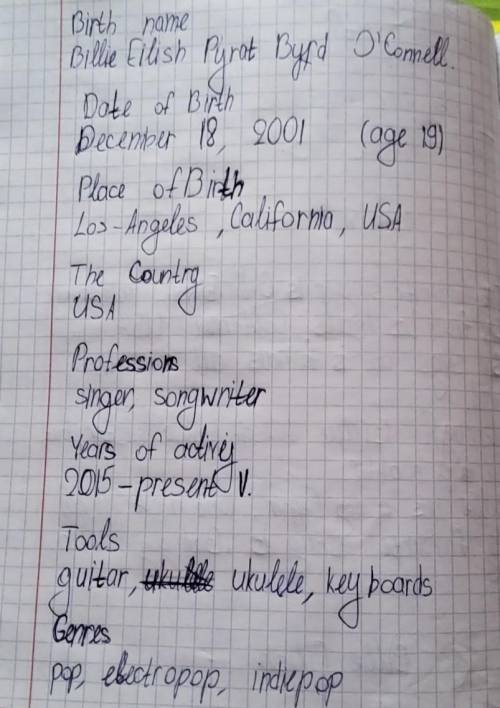 Birth name
Billie Eilish Pyrat Byrd O'Connell.
Date of Birth
December 18, 2001 (age 19)
Place of Birth
Los-Angeles, California, USA
The Country
USA
Professions
singer, songwriter
Years of activiy
2015-present V.
Tools
guitar, ukulele, keyboards
Genres
pop, electropop, indiepop